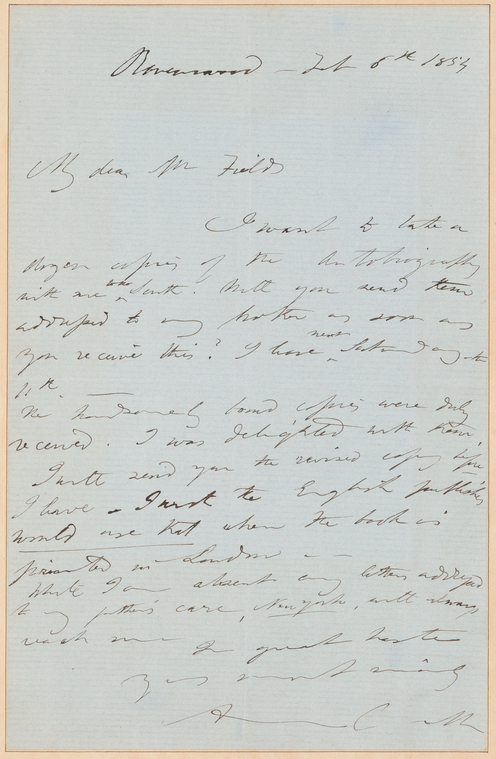 Ravenswood - Feb 6th 1854
My dear Mr Fields
I want to take a
dozen copies of the Autobiography
with me South. Will you send them
addressed to my brother as soon as
you receive this? I leave next Saturday the
11th.
The handsomely bound copies were duly
received. I was delighted with them.
I will send you the revised copy before
I leave - I wish the English publishers
would use that when the book is
printed in London - -
While I am absent any letters addressed
to my father's care, New York, will always
reach me - In great haste
Yrs most truly
Anna C. M